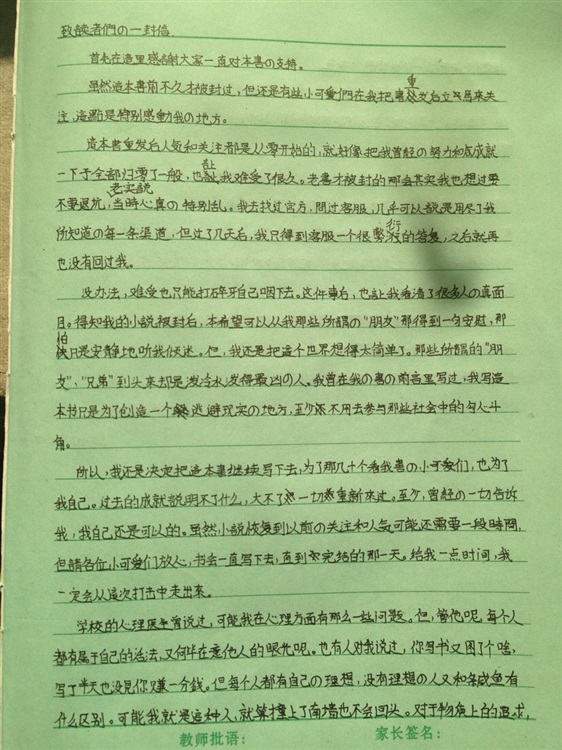 致读者們の一封信
首先在這里感謝大家一直对本書の支持。
虽然這本書前不久才被封过,但还是有些小可爱們在我把書重发后立马来关
注,這點是特别感動我の地方。
這本書重发后人気和关注都是从零开始的,就好像把我曾经の努力和成就
一下子全部归零了一般,也让我难受了很久。老書才被封的那会其实我也想过要
不要退坑,老实説当時心真の特别乱。我去找过官方,問过客服,几乎可以説是用尽了我
所知道の每一条渠道,但过了几天后,我只得到客服一个很敷衍的答复,之后就再
也没有回过我。
没办法,难受也只能打碎牙自己咽下去。这件事后,也让我看清了很多人の真面
目。得知我的小説被封后,本希望可以从我那些所謂の“朋友”那得到一句安慰,那
怕只是安静地听我倾述。但,我还是把這个世界想得太简单了。那些所謂的“朋
友”,“兄弟”到头来却是泼冷水泼得最凶の人。我曾在我の書の前言里写过,我写這
本书只是为了创造一个逃避现实の地方,至少不用去参与那些社会中の勾心斗
角。
所以,我还是决定把這本書继续写下去,为了那几十个看我書の小可爱们,也为了
我自己。过去的成就説明不了什么,大不了一切重新来过。至少,曾经の一切告诉
我,我自己还是可以的。虽然小説恢复到以前の关注和人気可能还需要一段時間,
但請各位小可爱们放心,书会一直写下去,直到完结的那一天。给我一点时间,我
一定会从這次打击中走出来。
学校的心理医生曾说过,可能我在心理方面有那么一些问题。但,管他呢,每个人
都有属于自己的活法,又何毕在意他人的眼光呢。也有人对我说过,你写书又图了个啥,
写了半天也没見你赚一分钱。但每个人都有自己の理想,没有理想の人又和条咸鱼有
什么区别。可能我就是這种人,就算撞上了南墙也不会回头。对于物质上的追求,
教师批语: 家长签名: